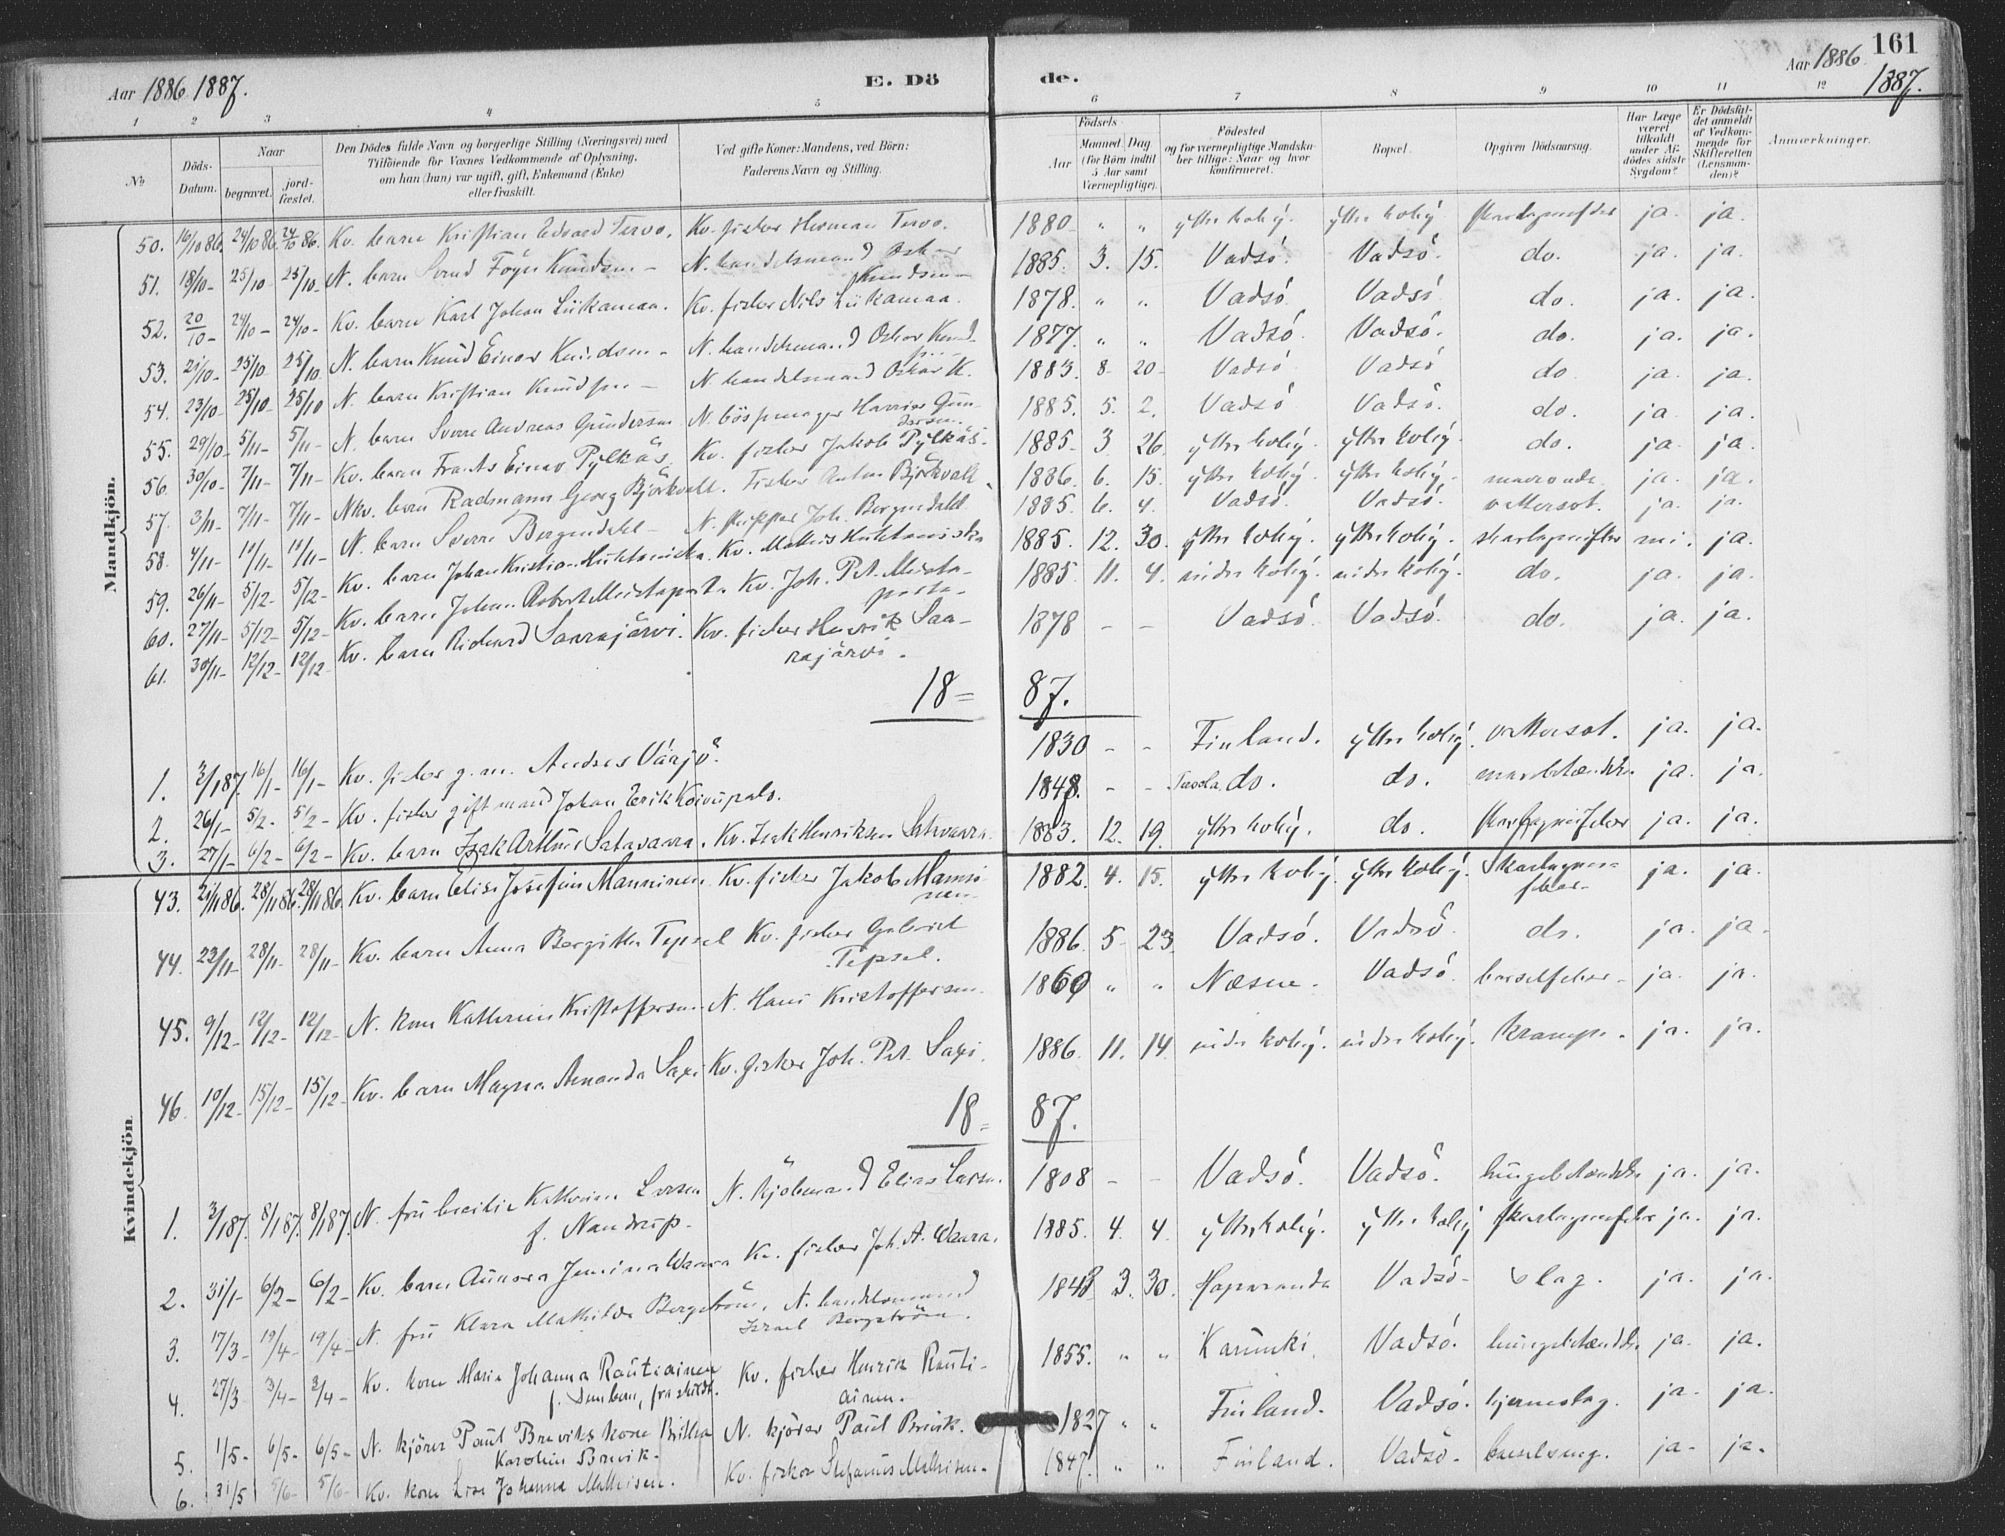 161
Aar 1886 1887. E. Dö de. Aar 1886 1887.
1 2 3 4 5 6 7 8 9 10 11 12
No
Döds-Datum.
Naar
begravet.
jord-fæstet.
Den Dödes fulde Navn og borgerlige Stilling (Næringsvei) med
Tilföiende for Voxnes Vedkommende af Oplysning,
om han (hun) var ugift, gift, Enkemand (Enke)
eller fraskilt.
Ved gifte Koner: Mandens, ved Börn:
Faderens Navn og Stilling.
Födsels
Aar
Maaned Dag
(for Börn indtil
5 Aar samt
Værnepligtige).
Födested
og for værnepligtige Mandska-
ber tillige: Naar og hvor
konfirmeret.
Bopæl.
Opgiven Dödsaarsag.
Har Læge
været
tilkaldt
under Af-
dödes sidste
Sygdom?
Er Dödsfal-
det anmeldt
af Vedkom-
mende for
Skifteretten
(Lensman-
den)?
Anmærkninger.
Mandkjön.
50. 16/10 86. 24/10 86. 24/10 86. Kv. barn Kristian Edvard Tervo. Kv. fisker Herman Tervo. 1880 " " ytter koly. ytter koly. skarlagensfeber ja. ja.
51. 18/10- 25/10 25/10- N. barn Svend Föyn Knudsen - N. handelsmand Oskar Knudsen - 1885. 3. 15. Vadsö. Vadsö. do. ja. ja.
52. 20/10- 24/10- 24/10- Kv. barn Karl Johan Liikamaa. Kv. fisker Nils Liikamaa. 1878. " " Vadsö Vadsö do. ja. ja.
53. 21/10- 25/10 25/10 N. barn Knud Einar Knudsen - N. handelsmand Oskar Knud 1877. " " Vadsö. Vadsö. do. ja. ja.
54. 23/10- 25/10- 25/10 N. barn Kristian Knudsen - N. handelsmand Oskar K. 1883. 8- 20- Vadsö Vadsö do. ja. ja.
55. 29/10- 5/11- 5/11- N. barn Sverre Andreas Gundersen N. bösmager Gundersen 1885. 5. 2. Vadsö Vadsö. do. ja. ja.
56. 30/10- 7/11- 7/11- Kv. barn Frants Einar Pylkäs Kv. fisker Jakob Pylkäs. 1885- 3 26. ytter koly. ytter koly. do. ja. ja.
57. 3/11- 7/11- 7/11- Nkv. barn Radmann Georg Björkvall. Fisker Anton Björkvall 1886. 6. 15. ytter koly. ytter koly. ja. ja.
58. 4/11- 10/11- 10/11- N. barn Sverre Bergendahl - N. skipper Joh. Bergendahl 1885. 6. 4. Vadsö. Vadsö. vattersot. ja. ja.
59. 26/11- 5/12- 5/12- Kv. barn Johan Kristian Huhtaniska. Kv. Mathis Huhtaniska 1885. 12. 30. ytter koly. ytter koly. skarlagensfeber nei. ja.
60. 27/11- 5/12- 5/12- Kv. barn Johan Robert Mustaparta Kv. Joh. Pet. Mustaparta- 1885. 11. 4. nidre koly. nidre koly. do. ja. ja.
61. 30/11- 12/12- 12/12- Kv. barn Richard Saarajärvi. Kv. fisker Henrik Saarajärvi. 1878 - - Vadsö. Vadsö. do. ja. ja.
18= 87.
1. 3/1 87. 16/1- 16/1- Kv. fisker g. m. Andres Väarjö. 1830 - - Finland. ytter koly. vattersot. ja. ja.
2. 26/1- 5/2- 5/2- Kv. fisker gift mand Johan Erik Koivupalo. 1848. - - do. do. ja. ja.
3. 27/1- 6/2- 6/2- Kv. barn Isak Arthur Satavaara. Kv. Isak Henriksen Satavaara 1883. 12. 19. ytter koly. do. skarlagensfeber ja. ja.
Kvindekjön
43. 21/11 86. 28/11 86. 28/11 86. Kv. barn Elise Josefine Manninen Kv. fisker Jakob Manninen- 1882. 4. 15. ytter koly. ytter koly. skarlagensfeber- ja. ja.
44. 22/11- 28/11- 28/11- Kv. barn Anna Bergitte Tepsel Kv. fisker Gabriel Tepsel. 1886. 5- 23. Vadsö. Vadsö. do. ja. ja.
45. 9/12- 12/12- 12/12- N. kone Kathrine Kristoffersen N. Hans Kristoffersen. 1860 " " Næsne. Vadsö. barselfeber- ja. ja.
46. 10/12- 15/12- 15/12- Kv. barn Magna Amanda Saxi Kv. fisker Joh. Pet. Saxi. 1886. 11. 14. nidre koly. nidre koly. krampe. ja. ja.
18= 87.
1. 3/1 87. 8/1 87. 8/1 87. N. fru Cecilie Kathrine Larsen f. Nandrup. N. kjöbmand Elias Larsen. 1808 - - Vadsö. Vadsö. lungebetændelse ja. ja.
2. 31/1- 6/2- 6/2- Kv. barn Aurora Jemina Waara Kv. fisker Joh. A. Waara. 1885. 4. 4. ytter koly. ytter koly skarlagensfeber ja. ja.
3. 17/3- 19/4- 19/4- N. fru Klara Mathilde Bergström. N. handelsmand Israel Bergström. 1843 3. 30. Haparanda Vadsö- slag. ja. ja.
4. 27/3 3/4- 3/4- Kv. kone Maria Johanna Rautiainen fraskilt. Kv. fisker Henrik Rautiainen. 1855. " " Karunki Vadsö. lungebetændelse ja. ja.
5. 1/5- 6/5- 6/5- N. kjörer Paul Breviks kone Britha Karoline Brevik. N. kjörer Paul Brevik. 1827 " " Finland. Vadsö. hjerneslag. ja. ja.
6. 31/5 5/6- 5/6- Kv. kone Lisa Johanna Mathisen. Kv. fisker Stefanus Mathisen. 1847. " " Finland. Vadsö. barselseng. ja- ja.